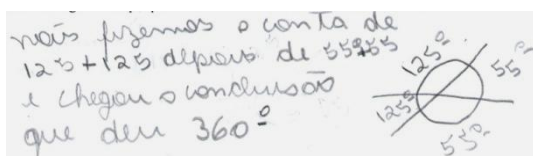 nois fizemos a conta de
125+125 depois de 55+55
e chegou a conclusão
que deu 360º
125º
55º
125º
55º